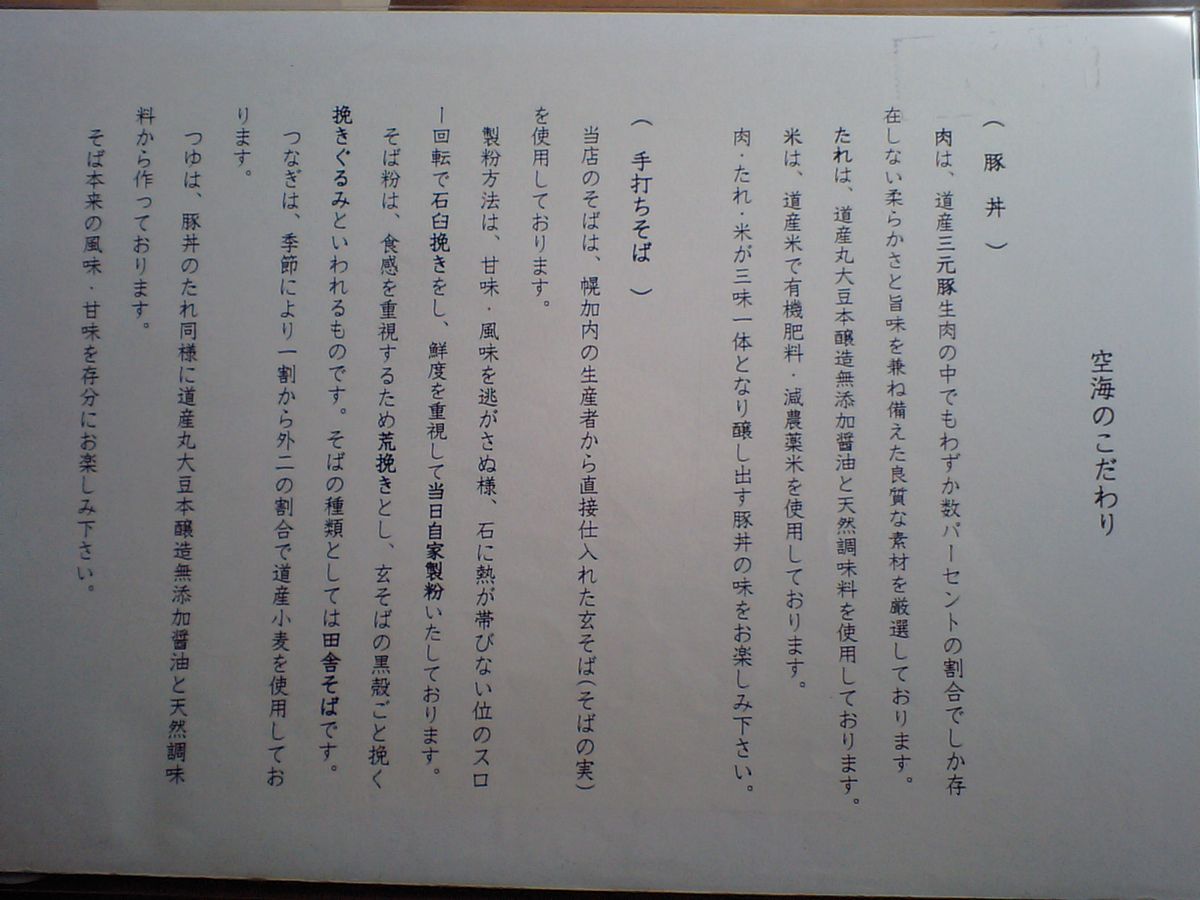 空海のこだわり
(豚丼)
肉は、道産三元豚生肉の中でもわずか数パーセントの割合でしか存
在しない柔らかさと旨味を兼ね備えた良質な素材を厳選しております。
たれは、道産丸大豆本醸造無添加醤油と天然調味料を使用しております。
米は、道産米で有機肥料・減農薬米を使用しております。
肉・たれ・米が三味一体となり醸し出す豚丼の味をお楽しみ下さい。
(手打ちそば)
当店のそばは、幌加内の生産者から直接仕入れた玄そば(そばの実)
を使用しております。
製粉方法は、甘味・風味を逃がさぬ様、石に熱が帯びない位のスロ
ー回転で石臼挽きをし、鮮度を重視して当日自家製粉いたしております。
そば粉は、食感を重視するため荒挽きとし、玄そばの黒殻ごと挽く
挽きぐるみといわれるものです。そばの種類としては田舎そばです。
つなぎは、季節により一割から外二の割合で道産小麦を使用してお
ります。
つゆは、豚丼のたれ同様に道産丸大豆本醸造無添加醤油と天然調味
料から作っております。
そば本来の風味・甘味を存分にお楽しみ下さい。